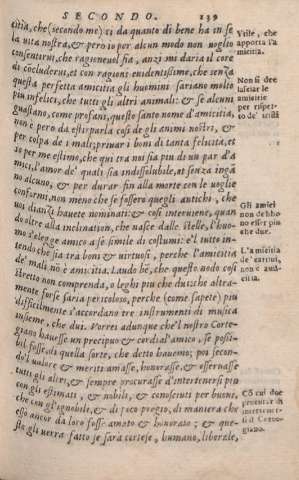 SECONDO. 139
citia, che (secondo me) ci da quanto di bene ha in se
la uita nostra, & però io per alcun modo non uoglio
consentirui, che ragioneuol sia, anzi mi daria il core
di cōcluderui, et con ragioni euidentissime, che senza
questa perfetta amicitia gli huomini sariano molto
piu infelici, che tutti gli altri animali: & se alcuni
guastano, come profani, questo santo nome d'amicitia,
non è però da estirparla cosi de gli animi nostri, &
per colpa de i mali, priuar i boni di tanta felicità, et
io per me estimo, che qui tra noi sia piu di un par d'a
mici, l'amor de' quali sia indissolubile, et senza ingā
no alcuno, & per durar fin alla morte con le uoglie
conformi, non meno che se fossero quegli antichi, che
uoi dianzi hauete nominati: & cosi interuiene, quan
do oltre alla inclination, che nasce dalle stelle, l'huo-
mo s'elegge amico a se simile di costumi: e'l tutto in-
tendo che sia tra boni & uirtuosi, perche l'amicitia
de' mali nō è amicitia. Laudo bē, che questo nodo cosi
stretto non comprenda, o leghi piu che dui: che altra-
mente forse saria pericoloso, perche (come sapete) piu
difficilmente s'accordano tre instrumenti di musica
insieme, che dui. Vorrei adunque che'l nostro Corte-
giano hauesse un precipuo & cordial amico, se possi-
bil fosse, di quella sorte, che detto hauemo; poi secon-
do'l ualore & meriti amasse, honorasse, & osseruasse
tutti gli altri, & sempre procurasse d'intertenersi piu
con gli estimati, & nobili, & conosciuti per buoni,
che con gl'ignobili, & di poco pregio, di maniera che
esso ancor da loro fosse amato & honorato; & que-
sto gli uerra fatto se sarà cortese, humano, liberale,
Vtile, che
apporta l'a
micitia.
Non si dee
lasciar le
amicitie
per rispet-
to de' tristi
Gli amici
non debbo
no esser piu
che due.
L'amicitia
de' cattiui,
non è ami-
citia.
Cō cui dee
procurar di
intertener-
si il Corte-
giano.